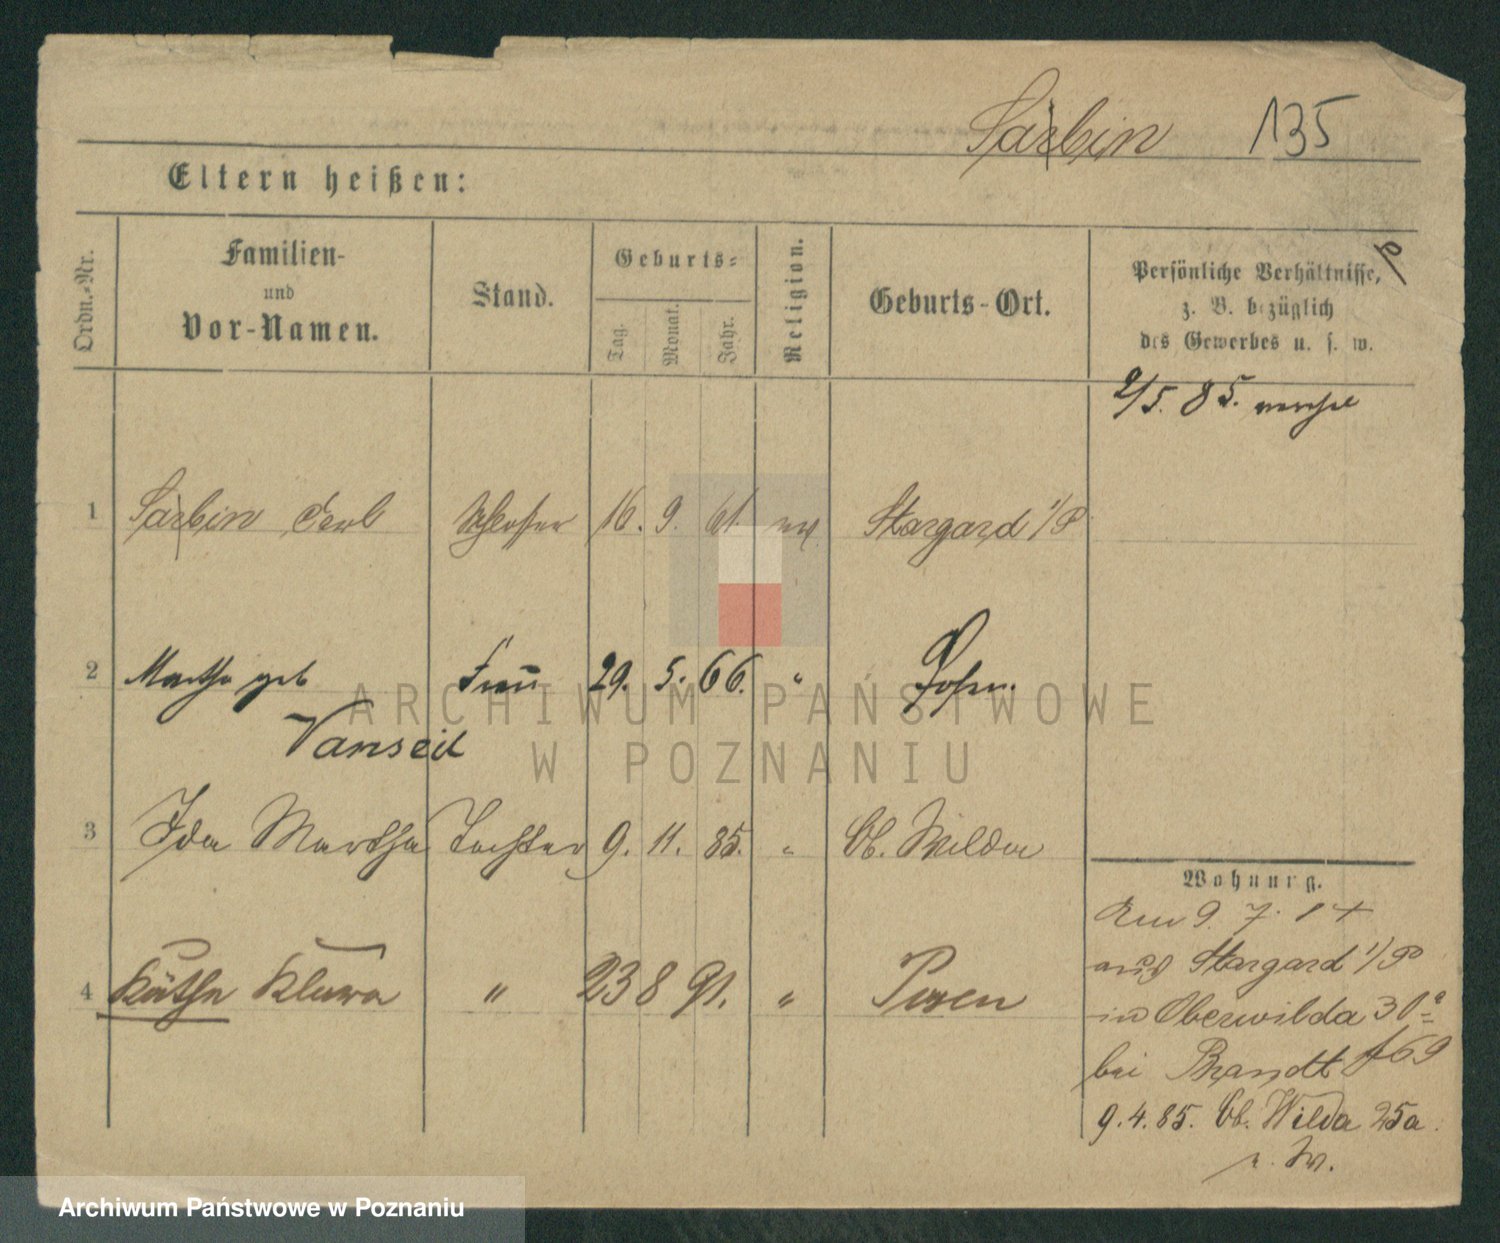 Sarbin 135
Eltern heißen:
Ordn.-Nr.
Familien-
und
Vor-Namen.
Stand.
Geburts-
Tag.
Monat.
Jahr.
Religion.
Geburts-Ort.
Persönliche Verhältnisse,
z. B. bezüglich
des Gewerbes u. s. w.
2/5. 85.
1 Sarbin Carl Schlosser 16. 9. 61. ev. Stargard i/P
2 Martha geb Frau 29. 5. 66. " Posen.
Vanseil
3 Ida Martha Tochter 9. 11. 85. " Ob. Wilda
4 Käthe Klara " 23 8 91. " Posen
Wohnung.
9. 7. 84
aus Stargard i/P
in Oberwilda 30a
bei Brandt f69
9. 4. 85. Ob. Wilda 25a.
ARCHIWUM PAŃSTWOWE
W POZNANIU
Archiwum Państwowe w Poznaniu